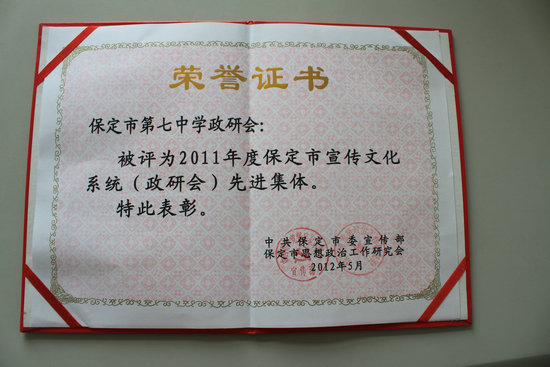 荣誉证书
保定市第七中学政研会：
被评为2011年度保定市宣传文化
系统（政研会）先进集体。
特此表彰。
中共保定市委宣传部
保定市思想政治工作研究会
2012年5月
宣传部